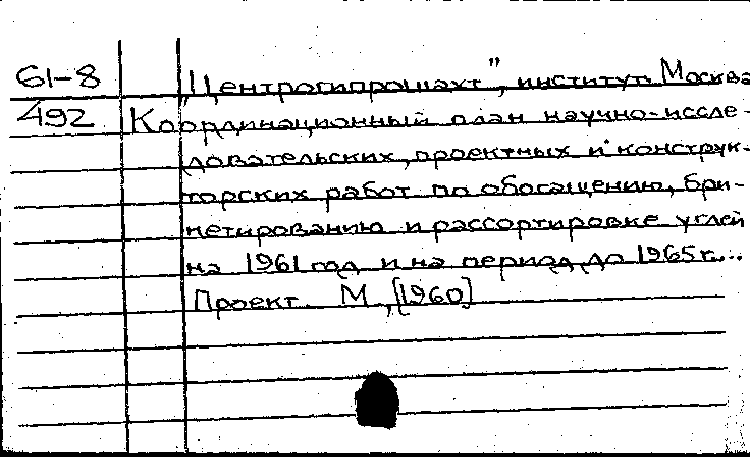 61-8 "Центрогипрошахт", институт. Москва
492 Координационный план научно-иссле-
довательских, проектных и конструк-
торских работ по обогащению, бри-
кетированию и рассортировке углей
на 1961 год и на период до 1965 г...
Проект. М., [1960]